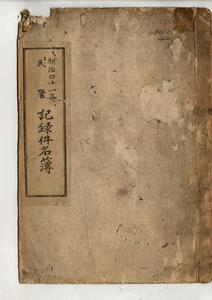 明治四十一年
民警
記録件名簿